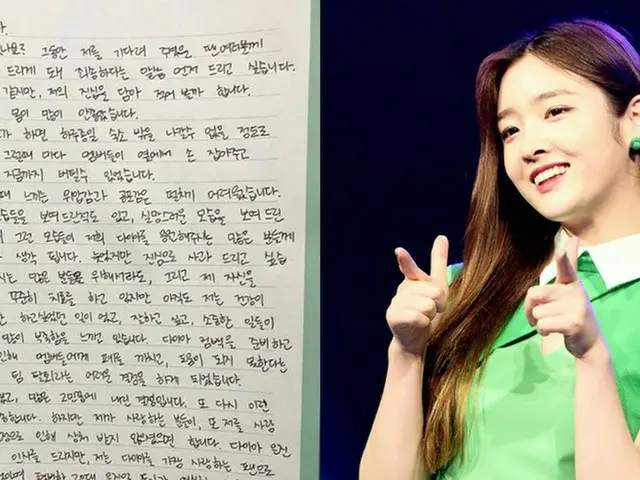 다.
그동안 저를 기다려 주셨을 팬 여러분께
드리게 돼 죄송하다는 말씀 먼저 드리고 싶습니다.
같지만, 저의 진심을 담아 적어 볼까 합니다.
몸이 많이 안좋았습니다.
가 하면 하루종일 숙소 밖을 나갈수 없을 정도로
그럴때 마다 멤버들이 옆에서 손 잡아주고
지금까지 버틸수 있었습니다.
때 느끼는 위압감과 공포감은 떨치기 어려웠습니다.
모습들을 보여 드린적도 있고, 실망스러운 모습을 보여 드린
그런 모습들이 저희 다이아를 응원해주시는 많은 분들께
생각 됩니다. 늦었지만 진심으로 사과 드리고 싶습
시는 많은 분들을 위해서라도, 그리고 제 자신을
꾸준히 치료를 하고 있지만 아직도 저는 건강이
하고싶었던 일이 었고, 잘하고 싶고, 소중한 일들이
많이 부족함을 느끼고 있습니다. 다이아 컴백을 준비하고
인해 멤버들에게 폐를 끼치고, 도움이 되지 못한다는
팀 탈퇴라는 어려운 결정을 하게 되었습니다.
고, 많은 고민끝에 내린 결정입니다. 또 다시 이런
송합니다. 하지만 제가 사랑하는 분들이, 또 저를 사랑
것으로 인해 상처 받지 않았으면 합니다. 다이아 은진
인사를 드리지만, 저는 다이아를 가장 사랑하는 팬으로
평범한 20대 은진으로